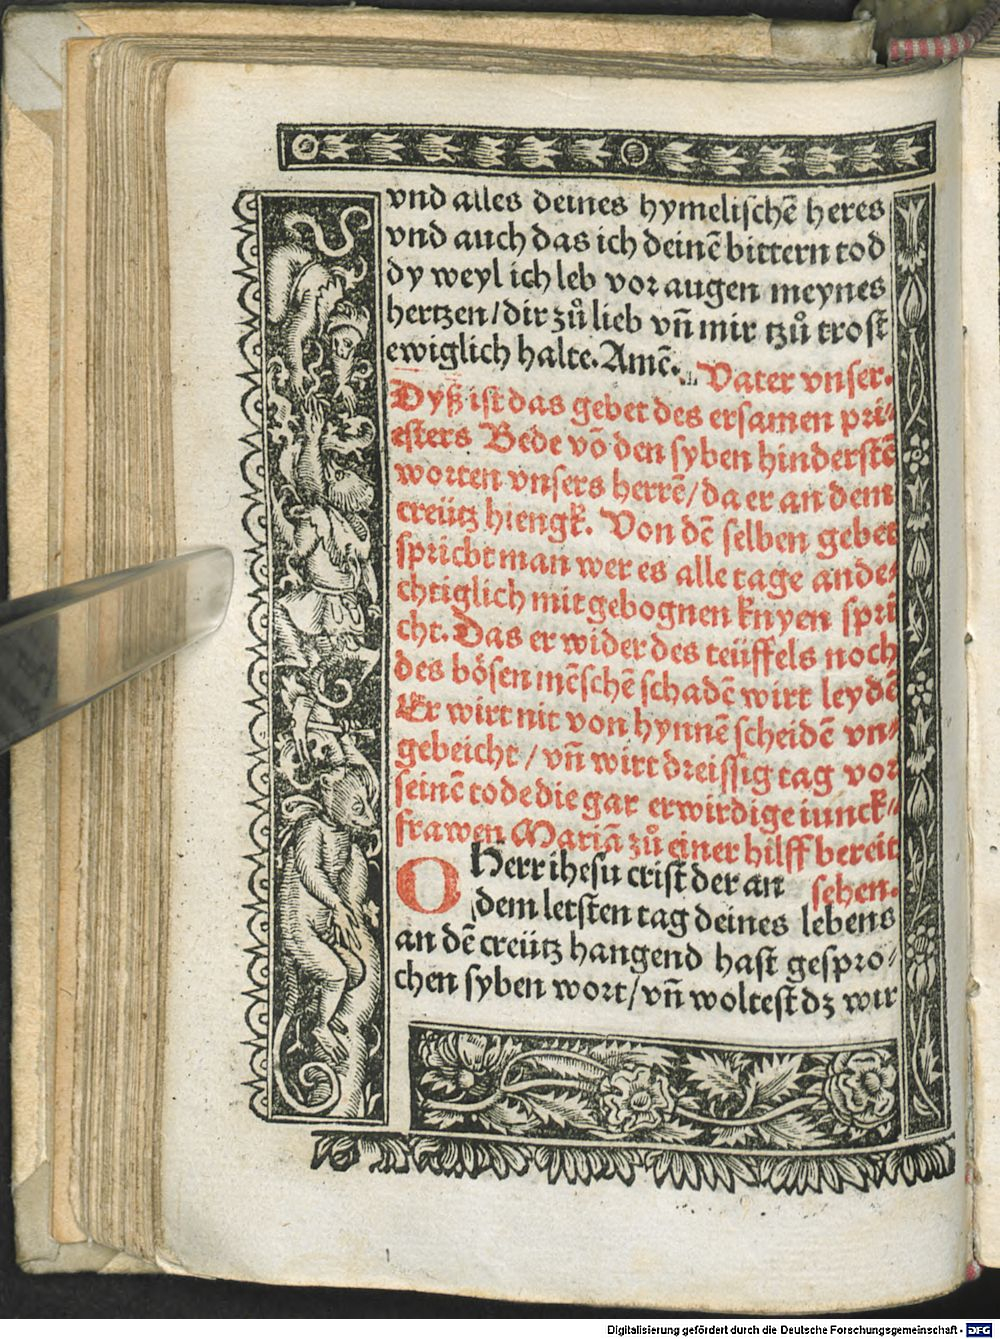 vnd alles deines hymelischē heres
vnd auch das ich deinē bittern tod
dy weyl ich leb vor augen meynes
hertzen/dir zů lieb vñ mir tzů trost
ewiglich halte. Amē. Vater vnser.
Dyß ist das gebet des ersamen pri⸗
esters Bede vō den syben hinderstē
worten vnsers herrē/da er an dem
creütz hiengk. Von dē selben gebet
spricht man wer es alle tage ande⸗
chtiglich mit gebognen knyen spri
cht. Das er wider des teüffels noch
des bösen mēschē schadē wirt leydē
Er wirt nit von hynnē scheidē vn⸗
gebeicht / vñ wirt dreissig tag vor
seinē tode die gar erwirdige iunck⸗
frawen Mariā zů einer hilff bereit
sehen.
O Herr ihesu crist der an
dem letsten tag deines lebens
an dē creütz hangend hast gespro⸗
chen syben wort/vñ woltest dz wir
Digitalisierung gefördert durch die Deutsche Forschungsgemeinschaft - DFG